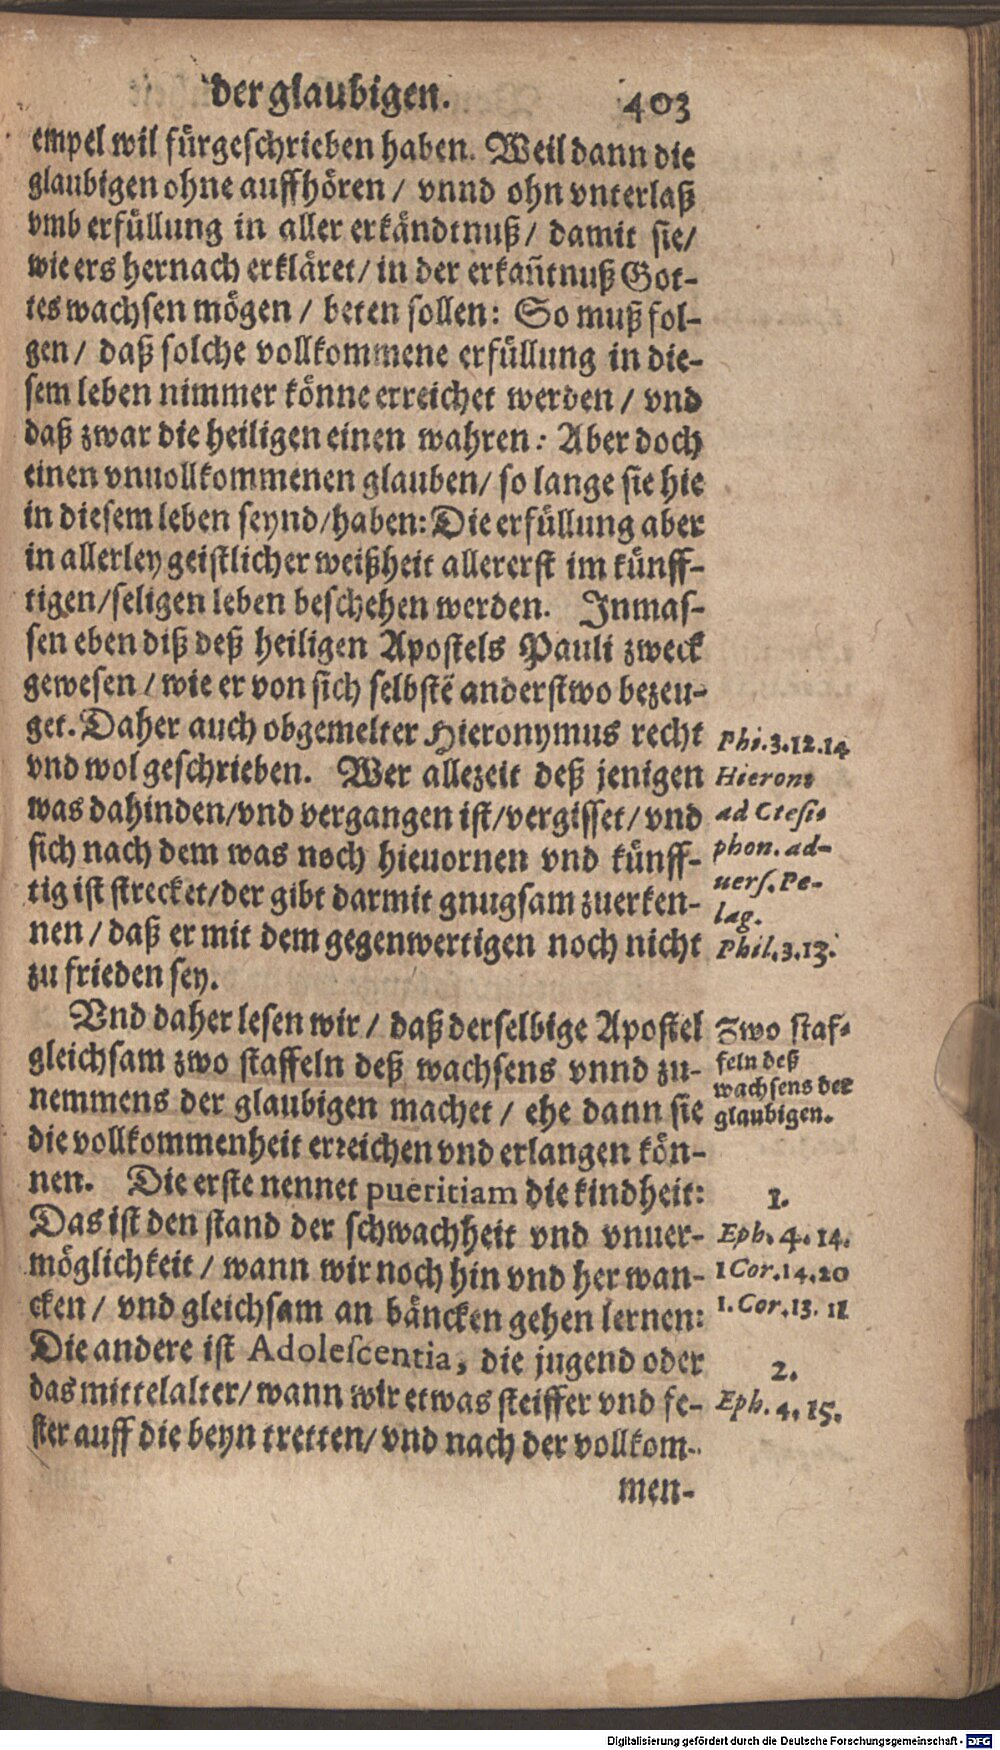 der glaubigen. 403
empel wil fürgeschrieben haben. Weil dann die
glaubigen ohne auffhören / vnnd ohn vnterlaß
vmb erfüllung in aller erkändtnuß / damit sie/
wie ers hernach erkläret / in der erkañtnuß Got-
tes wachsen mögen / beten sollen: So muß fol-
gen / daß solche vollkommene erfüllung in die-
sem leben nimmer könne erreichet werden / vnd
daß zwar die heiligen einen wahren: Aber doch
einen vnuollkommenen glauben / so lange sie hie
in diesem leben seynd/haben: Die erfüllung aber
in allerley geistlicher weißheit allererst im künff-
tigen/seligen leben beschehen werden. Inmas-
sen eben diß deß heiligen Apostels Pauli zweck
gewesen / wie er von sich selbstē anderstwo bezeu-
get. Daher auch obgemelter Hieronymus recht
vnd wol geschrieben. Wer allezeit deß jenigen
was dahinden/vnd vergangen ist/vergisset/ vnd
sich nach dem was noch hieuornen vnd künff-
tig ist strecket/der gibt darmit gnugsam zuerken-
nen / daß er mit dem gegenwertigen noch nicht
zu frieden sey.
Phi.3.12.14
Hieron.
ad Ctesi-
phon. ad-
uers. Pe-
lag.
Phil.3.13.
Vnd daher lesen wir / daß derselbige Apostel
gleichsam zwo staffeln deß wachsens vnnd zu-
nemmens der glaubigen machet / ehe dann sie
die vollkommenheit erreichen vnd erlangen kön-
nen. Die erste nennet pueritiam die kindheit:
Das ist den stand der schwachheit vnd vnuer-
möglichkeit / wann wir noch hin vnd her wan-
cken / vnd gleichsam an bäncken gehen lernen:
Die andere ist Adolescentia, die jugend oder
das mittelalter/ wann wir etwas steiffer vnd fe-
ster auff die beyn tretten/ vnd nach der vollkom-
Zwo staf-
feln deß
wachsens der
glaubigen.
1.
Eph. 4. 14.
1 Cor.14.20
1. Cor.13. 11
2.
Eph. 4. 15.
men-
Digitalisierung gefördert durch die Deutsche Forschungsgemeinschaft - DFG